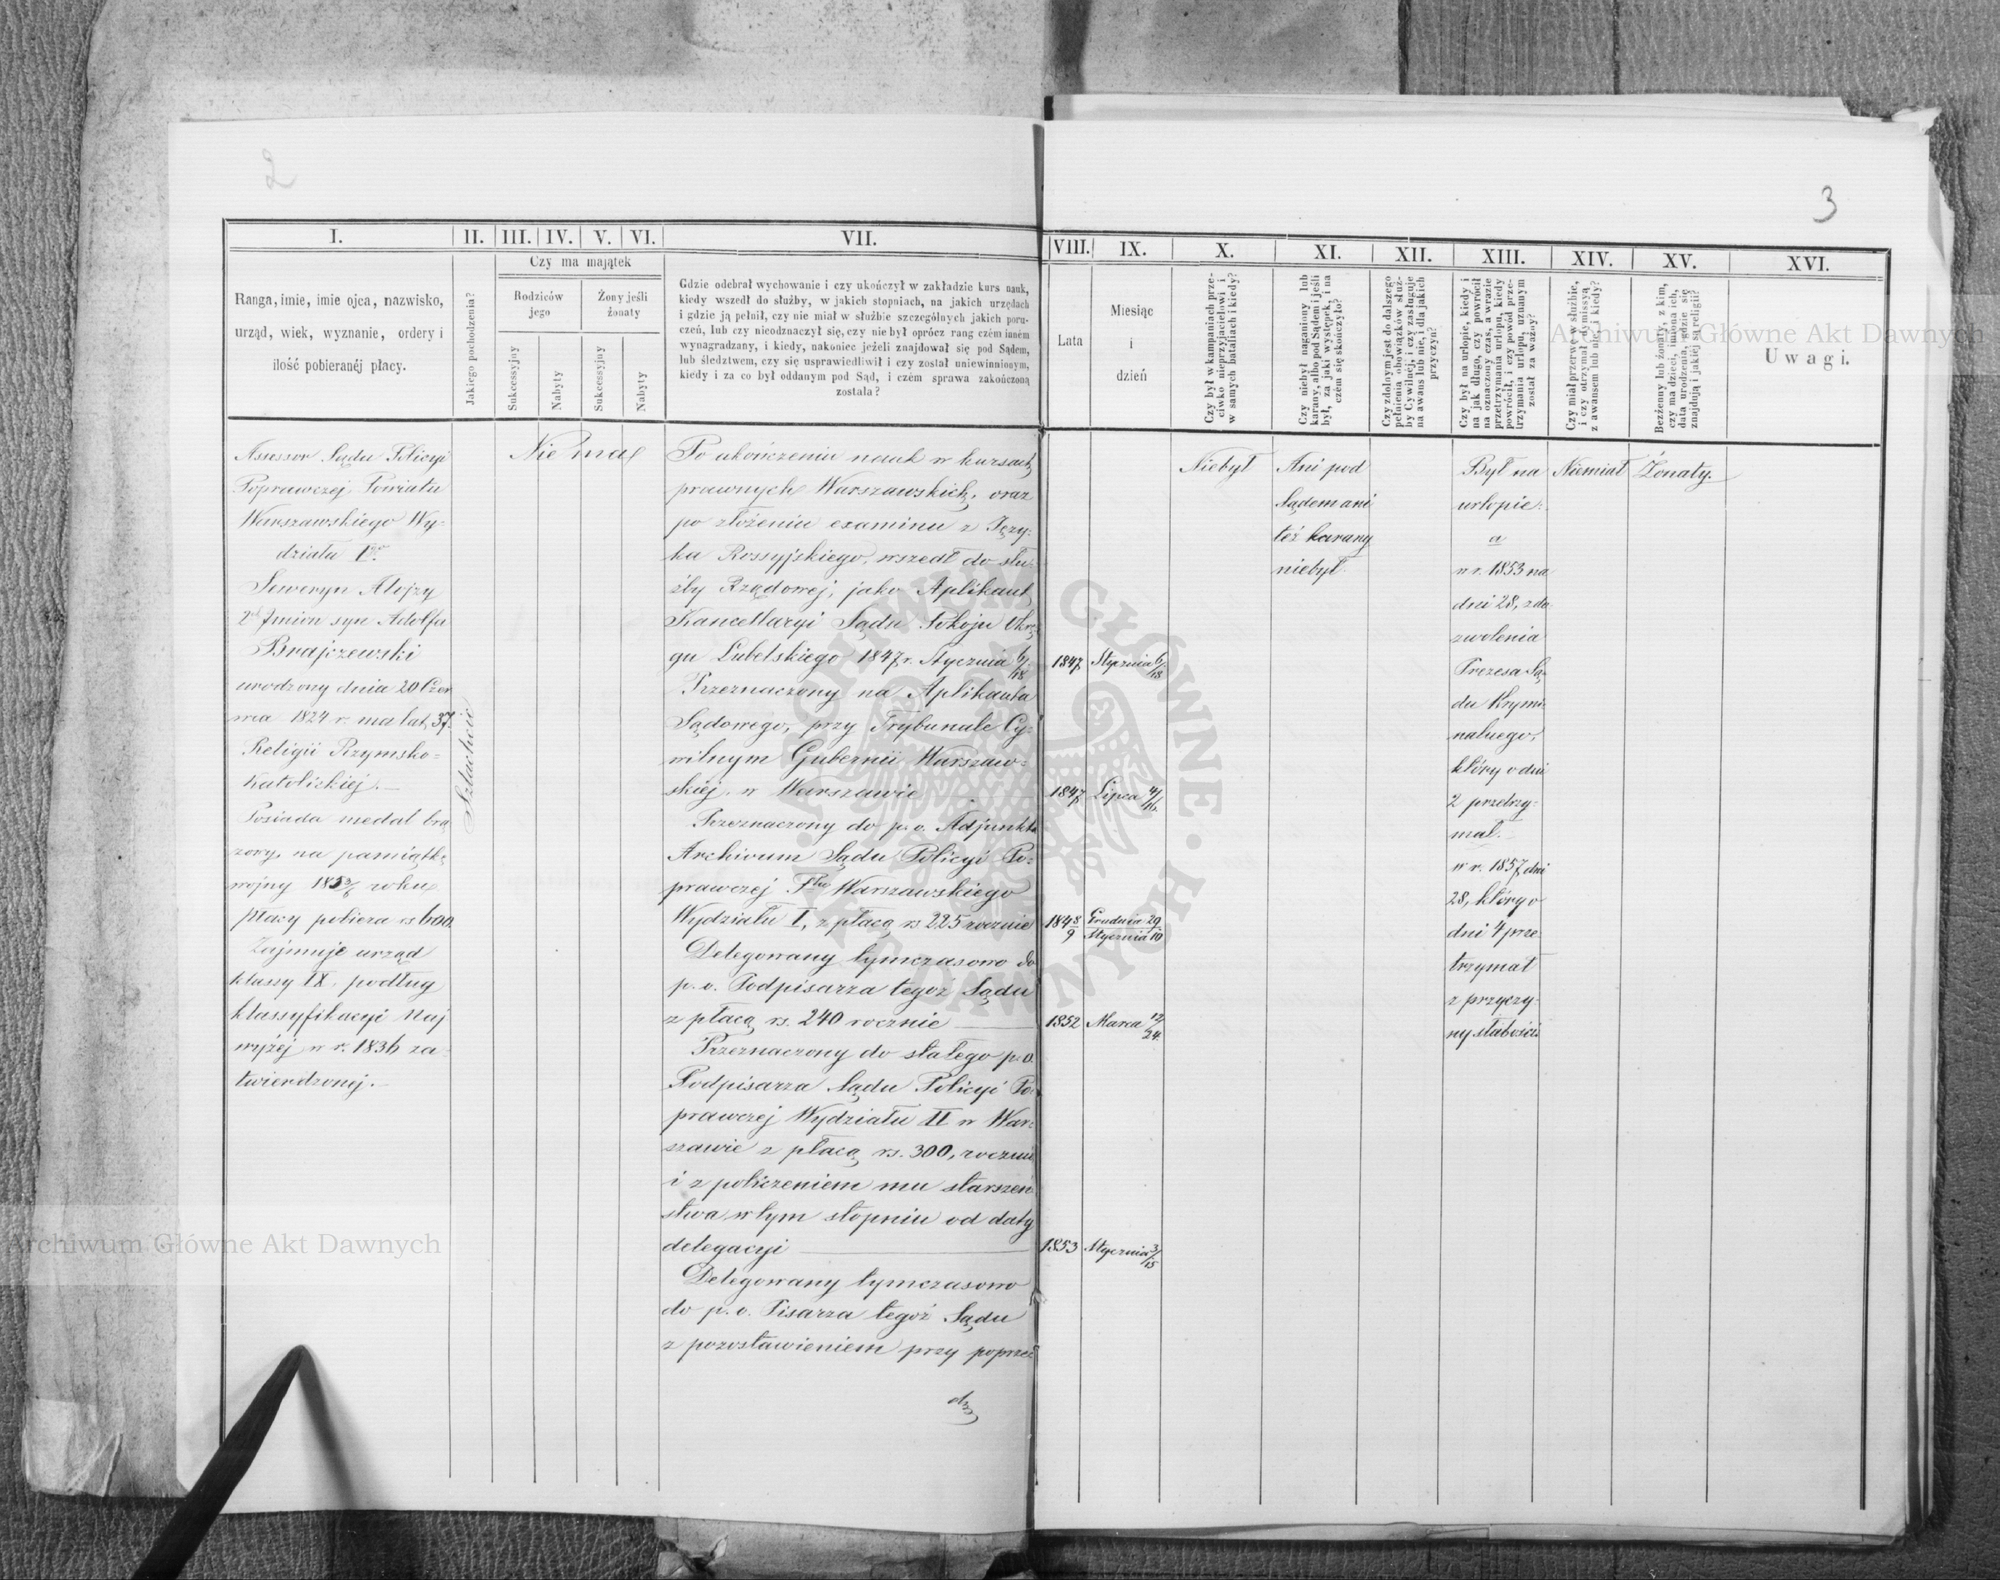 2
3
I.
II.
III.
IV.
V.
VI.
VII.
VIII.
IX.
X.
XI.
XII.
XIII.
XIV.
XV.
XVI.
Ranga, imie, imie ojca, nazwisko,
urząd, wiek, wyznanie, ordery i
ilość pobieranéj płacy.
Jakiego pochodzenia?
Czy ma majątek
Rodziców
jego
Żony jeśli
żonaty
Sukcessyjny
Nabyty
Sukcessyjny
Nabyty
Gdzie odebrał wychowanie i czy ukończył w zakładzie kurs nauk,
kiedy wszedł do służby, w jakich stopniach, na jakich urzędach
i gdzie ją pełnił, czy nie miał w służbie szczególnych jakich poru-
czeń, lub czy nieodznaczył się, czy nie był oprócz rang czém inném
wynagradzany, i kiedy, nakoniec jeżeli znajdował się pod Sądem,
lub śledztwem, czy się usprawiedliwił i czy został uniewinnionym,
kiedy i za co był oddanym pod Sąd, i czém sprawa zakończoną
została?
Lata
Miesiąc
i
dzień
Czy był w kampaniach prze-
ciwko nieprzyjacielowi i
w samych bataliach i kiedy?
Czy niebył naganiony lub
karany, albo pod Sądem i jeśli
był, za jaki występek, i na
czém się skończyło?
Czy zdolnym jest do dalszego
pełnienia obowiązków służ-
by Cywilnéj, i czy zasługuje
na awans lub nie, i dla jakich
przyczyn?
Czy był na urlopie, kiedy i
na jak długo, czy powrócił
na oznaczony czas, a w razie
przetrzymania urlopu, kiedy
powrócił, i czy powód prze-
trzymania urlopu, uznanym
został za ważny?
Czy miał przerwę w służbie,
i czy otrzymał dymissyą
z awansem lub nie i kiedy?
Bezżenny lub żonaty, z kim,
czy ma dzieci, imiona ich,
data urodzenia, gdzie się
znajdują i jakiéj są religii?
Uwagi.
Assessor Sądu Policyi
Poprawczej Powiatu
Warszawskiego Wy-
działu Igo
Seweryn Alojzy
2ch Imion syn Adolfa
Brajczewski
urodzony dnia 20 Czer
wca 1824 r. ma lat 37.
Religii Rzymsko-
Katolickiej.—
Posiada medal brą
zowy, na pamiątkę
wojny 1853/6 roku
płacy pobiera rs 600.
Zajmuje urząd
klassy IX, podług
klassyfikacyi Naj
wyżej w r. 1836 za-
twierdzonej.—
Szlachcic
Nie ma
Po ukończeniu nauk w kursach
prawnych Warszawskich, oraz
po złożeniu examinu z Języ-
ka Rossyjskiego, wszedł do słu-
żby Rządowej, jako Aplikant
Kancellaryi Sądu Pokoju Okrę-
gu Lubelskiego 1847 r. Stycznia 6/18
Przeznaczony na Aplikanta
Sądowego, przy Trybunale Cy-
wilnym Gubernii Warszaw-
skiej, w Warszawie
Przeznaczony do p. o. Adjunkta
Archivum Sądu Policyi Po-
prawczej Warszawskiego
Wydziału I, z płacą rs 225 rocznie
Delegowany tymczasowo do
p. o. Podpisarza tegoż Sądu
z płacą rs. 240 rocznie
Przeznaczony do stałego p. o.
Podpisarza Sądu Policyi Po-
prawczej Wydziału II w War-
szawie z płacą rs. 300, rocznie
i z policzeniem mu starszeń
stwa, w tym stopniu od daty
delegacyi
Delegowany tymczasowo
do p. o. Pisarza tegoż Sądu
z pozostawieniem przy poprze-
1847 Stycznia 6/18
1847 Lipca 4/16
1848/9 Grudnia 29/Stycznia 10
1852 Marca 12/24
1853 Stycznia 3/15
Niebył
Ani pod
Sądem ani
też karany
niebył.
Był na
urlopie:
a
w r. 1853 na
dni 28, z do
zwolenia
Prezesa Są-
du Krymi-
nalnego,
który o dni
2 przetrzy-
mał.
w r. 1857 dni
28, który o
dni 4 prze-
trzymał
z przyczy-
ny słabości
Niemiał
Żonaty.
Archiwum Główne Akt Dawnych
Archiwum Główne Akt Dawnych
ARCHIWUM GŁÓWNE AKT DAWNYCH